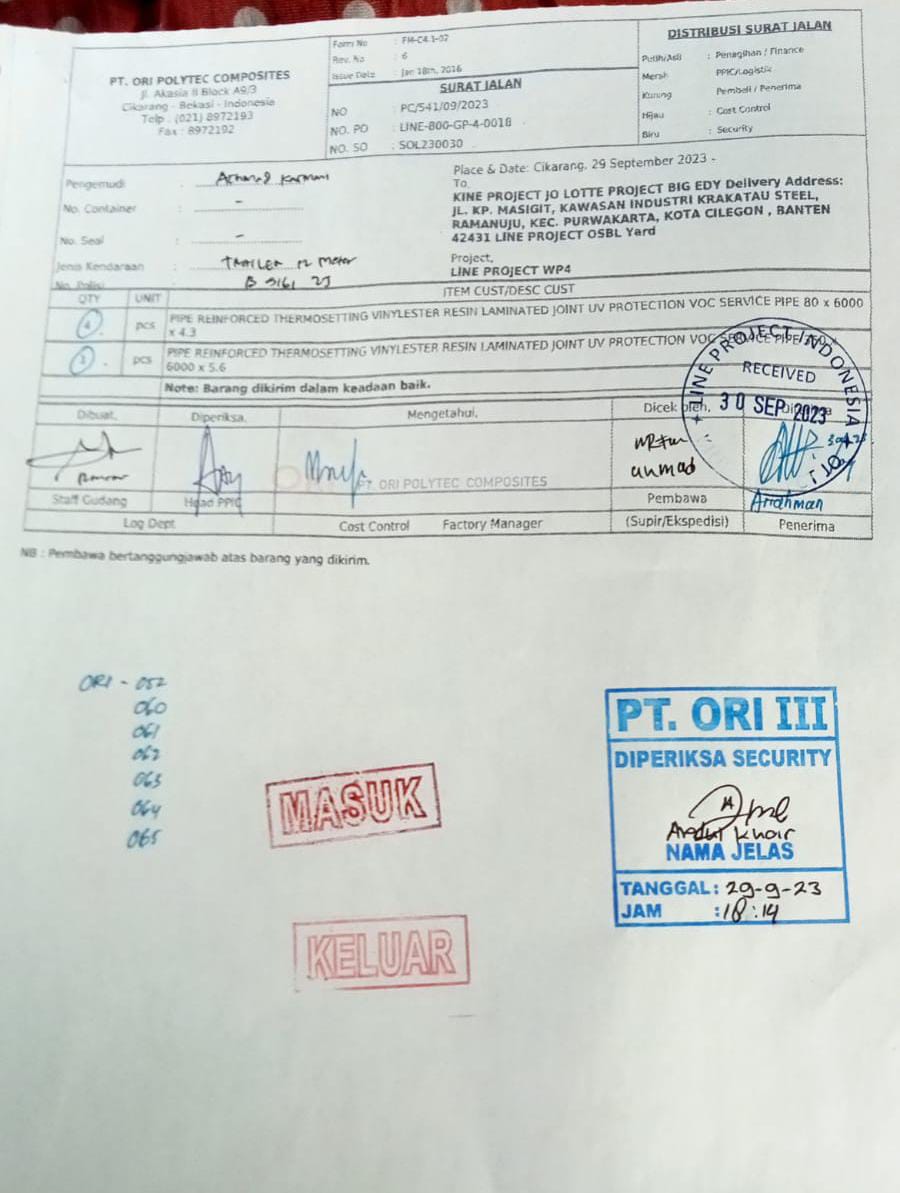 PT. ORI POLYTEC COMPOSITES
Jl. Akasia II Block A9/3
Cikarang - Bekasi - Indonesia
Telp. (021) 8972193
Fax : 8972192
Form No : FM-C4.1-02
Rev. No : 6
Issue Date : Jan 18th, 2016
SURAT JALAN
NO : PC/541/09/2023
NO. PO : LINE-800-GP-4-0018
NO. SO : SOL230030
DISTRIBUSI SURAT JALAN
Putih/Asli : Penagihan / Finance
Merah PPIC/Logistik
Kuning Pembeli / Penerima
Hijau : Cost Control
Biru : Security
Pengemudi :
No. Container : -
No. Seal : -
Jenis Kendaraan : TRAILER 12 Meter
No. Polisi B 9161
Place & Date: Cikarang, 29 September 2023 -
To,
KINE PROJECT JO LOTTE PROJECT BIG EDY Delivery Address:
JL. KP. MASIGIT, KAWASAN INDUSTRI KRAKATAU STEEL,
RAMANUJU, KEC. PURWAKARTA, KOTA CILEGON , BANTEN
42431 LINE PROJECT OSBL Yard
Project,
LINE PROJECT WP4
QTY UNIT ITEM CUST/DESC CUST
4 pcs PIPE REINFORCED THERMOSETTING VINYLESTER RESIN LAMINATED JOINT UV PROTECTION VOC SERVICE PIPE 80 x 6000
x 4.3
3 pcs PIPE REINFORCED THERMOSETTING VINYLESTER RESIN LAMINATED JOINT UV PROTECTION VOC SERVICE PIPE
6000 x 5.6
Note: Barang dikirim dalam keadaan baik.
LINE PROJECT INDONESIA
RECEIVED
30 SEP 2023
Dibuat, Diperiksa, Mengetahui, Dicek oleh, Diterima
PT. ORI POLYTEC COMPOSITES
Staff Gudang Head PPIC Pembawa Arrahman
Log Dept Cost Control Factory Manager (Supir/Ekspedisi) Penerima
NB : Pembawa bertanggungjawab atas barang yang dikirim.
ORI - 052
060
061
062
063
064
065
MASUK
KELUAR
PT. ORI III
DIPERIKSA SECURITY
Khoir
NAMA JELAS
TANGGAL: 29-9-23
JAM : 18:14